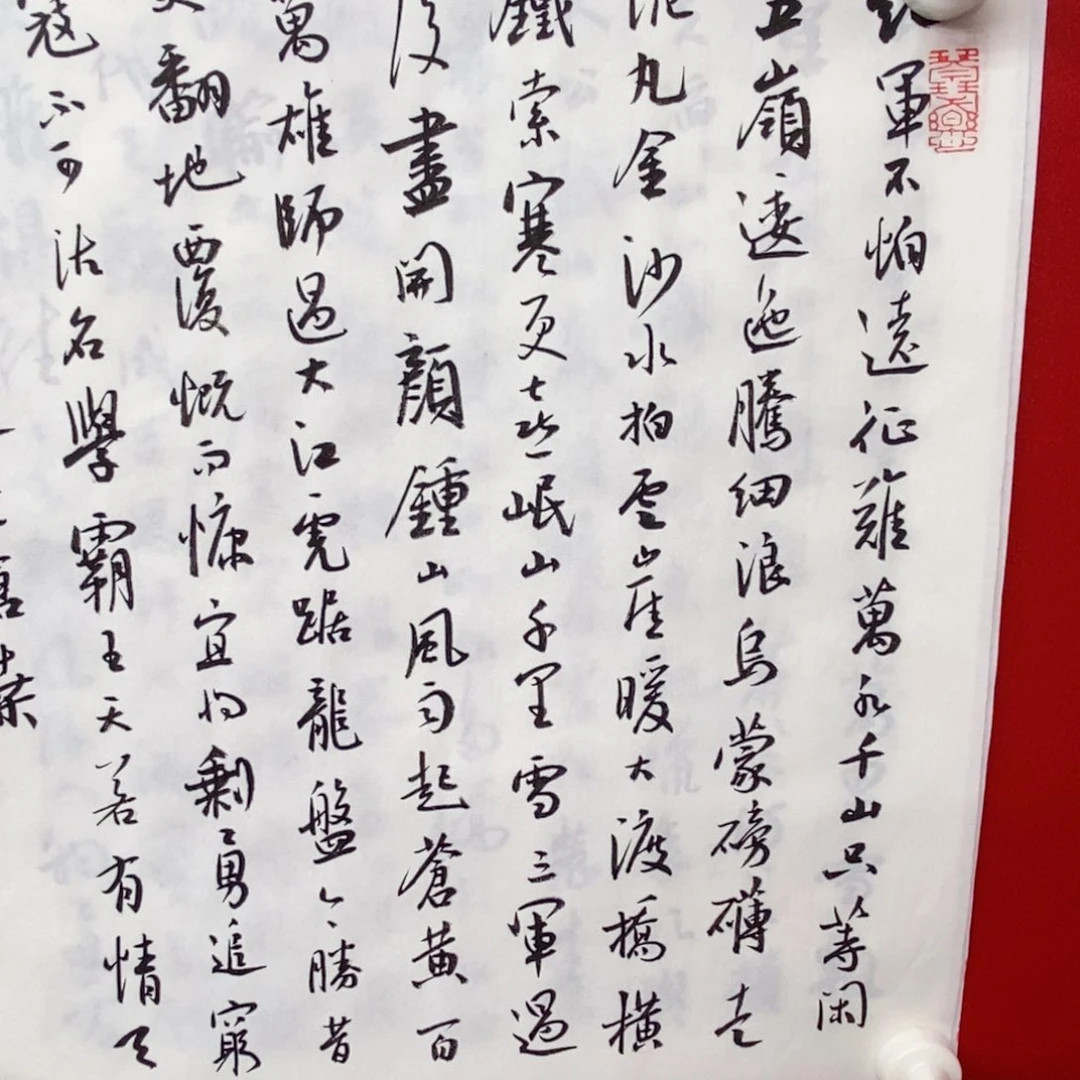 軍不怕遠征難萬水千山只等閑
五嶺逶迤騰細浪烏蒙磅礴走
泥丸金沙水拍雲崖暖大渡橋橫
鐵索寒更喜岷山千里雪三軍過
後盡開顏鍾山風雨起蒼黃百
萬雄師過大江虎踞龍盤今勝昔
翻地覆慨而慷宜將剩勇追窮
寇不可沽名學霸王天若有情天